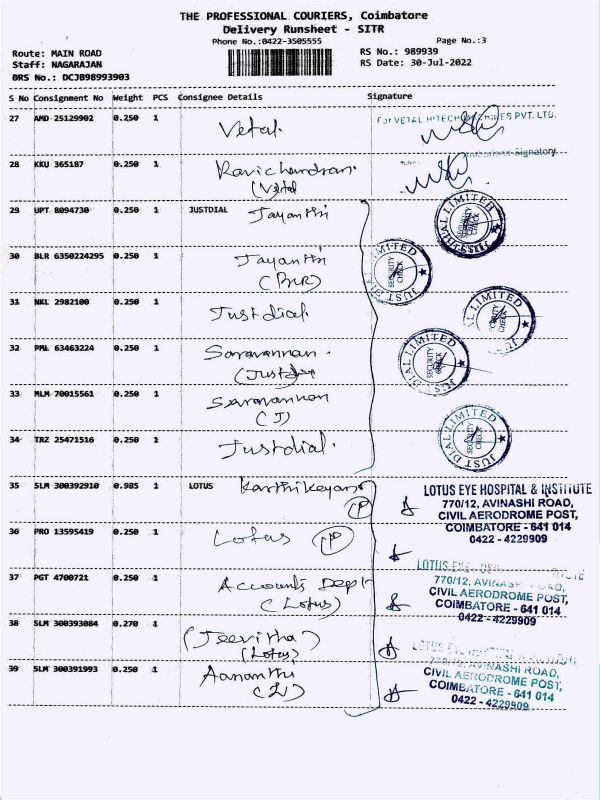 THE PROFESSIONAL COURIERS, Coimbatore
Delivery Runsheet - SITR
Phone No.:0422-3505555
Page No.:3
Route: MAIN ROAD
RS No.: 989939
Staff: NAGARAJAN
RS Date: 30-Jul-2022
DRS No.: DCJB98993903
S No Consignment No Weight PCS Consignee Details Signature
27 AMD 25129902 0.250 1 Vetal.
For VETAL HITECH PVT. LTD.
Signatory
28 KKU 365187 0.250 1 Ravichandran.
(Vetal
29 UPT 8094730 0.250 1 JUSTDIAL Jayanthi
JUST DIAL LIMITED SECURITY CHECK
30 BLR 6350224295 0.250 1 Jayanthi
(BLR)
JUST DIAL LIMITED SECURITY CHECK
31 NKL 2982100 0.250 1 Justdial.
JUST DIAL LIMITED SECURITY CHECK
32 PML 63463224 0.250 1 Saravannan.
(Justdial
JUST DIAL LIMITED SECURITY CHECK
33 MLM 70015561 0.250 1 Saravannan
(J)
34 TRZ 25471516 0.250 1 Justdial.
JUST DIAL LIMITED SECURITY CHECK
35 SLM 300392910 0.985 1 LOTUS Karthikeyan
(P)
LOTUS EYE HOSPITAL & INSTITUTE
770/12, AVINASHI ROAD,
CIVIL AERODROME POST,
COIMBATORE - 641 014
0422 - 4229909
36 PRO 13595419 0.250 1 Lotus (P)
LOTUS EYE
770/12, AVINASHI ROAD,
CIVIL AERODROME POST,
COIMBATORE - 641 014
0422 - 4229909
37 PGT 4700721 0.250 1 Accounts Dept
(Lotus)
38 SLM 300393084 0.270 1 (Jeevitha)
(Lotus)
LOTUS EYE
770/12, AVINASHI ROAD,
CIVIL AERODROME POST,
COIMBATORE - 641 014
0422 - 4229909
39 SLM 300391993 0.250 1 Aananthi
(L)